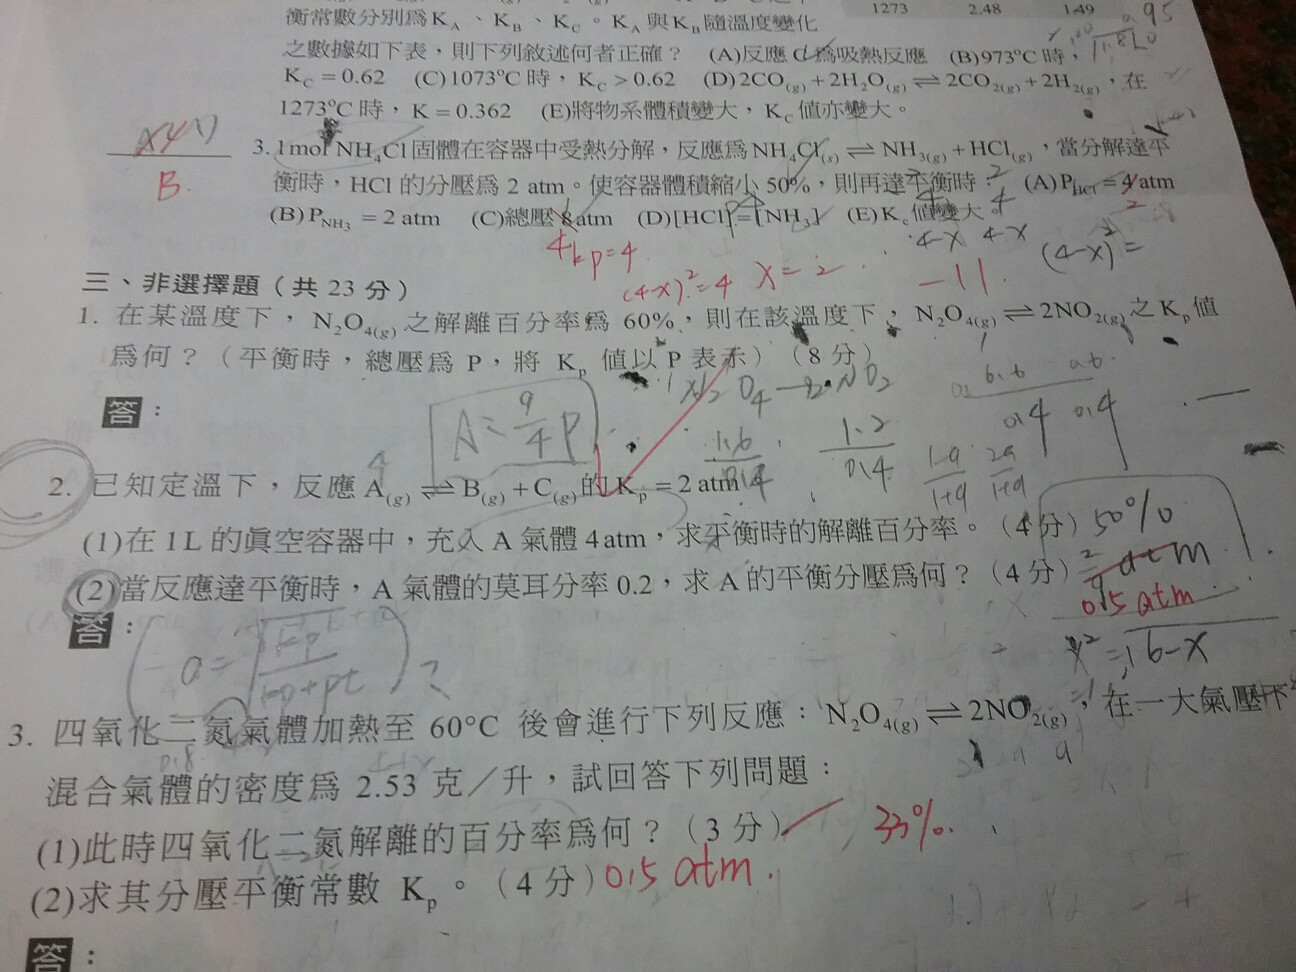 1273 2.48 1.49
95
衡常數分別為KA、KB、KC。KA與KB隨溫度變化
之數據如下表，則下列敘述何者正確？ (A)反應C為吸熱反應 (B)973°C時，
KC = 0.62 (C)1073°C時，KC > 0.62 (D)2CO(g) + 2H2O(g) ⇌ 2CO2(g) + 2H2(g)，在
1273°C時，K = 0.362 (E)將物系體積變大，KC值亦變大。
3. 1 mol NH4Cl固體在容器中受熱分解，反應為NH4Cl(s) ⇌ NH3(g) + HCl(g)，當分解達平
B.
衡時，HCl的分壓為2 atm。使容器體積縮小50%，則再達平衡時： (A)PHCl = 4 atm
2
(B) PNH3 = 2 atm (C)總壓8 atm (D)[HCl] = [NH3] (E) Kc值變大。
4 kp=4
4-x 4-x (4-x)²=
(4-x)²=4 x=2 -11
三、非選擇題（共23分）
1. 在某溫度下，N2O4(g)之解離百分率為60%，則在該溫度下，N2O4(g) ⇌ 2NO2(g)之Kp值
為何？（平衡時，總壓為P，將Kp值以P表示）（8分）
答：
A = 9/4 P
1.2/0.4
1-a/1+a 2a/1+a
2. 已知定溫下，反應A(g) ⇌ B(g) + C(g)的Kp = 2 atm
(1)在1L的真空容器中，充入A氣體4atm，求平衡時的解離百分率。（4分）50%
(2)當反應達平衡時，A氣體的莫耳分率0.2，求A的平衡分壓為何？（4分）
0.5 atm
答：
a = √kp/kp+pt ?
x² = 16-x
3. 四氧化二氮氣體加熱至60°C後會進行下列反應：N2O4(g) ⇌ 2NO2(g)，在一大氣壓下
混合氣體的密度為2.53克／升，試回答下列問題：
(1)此時四氧化二氮解離的百分率為何？（3分） 33%.
(2)求其分壓平衡常數Kp。（4分）0.5 atm.
答：